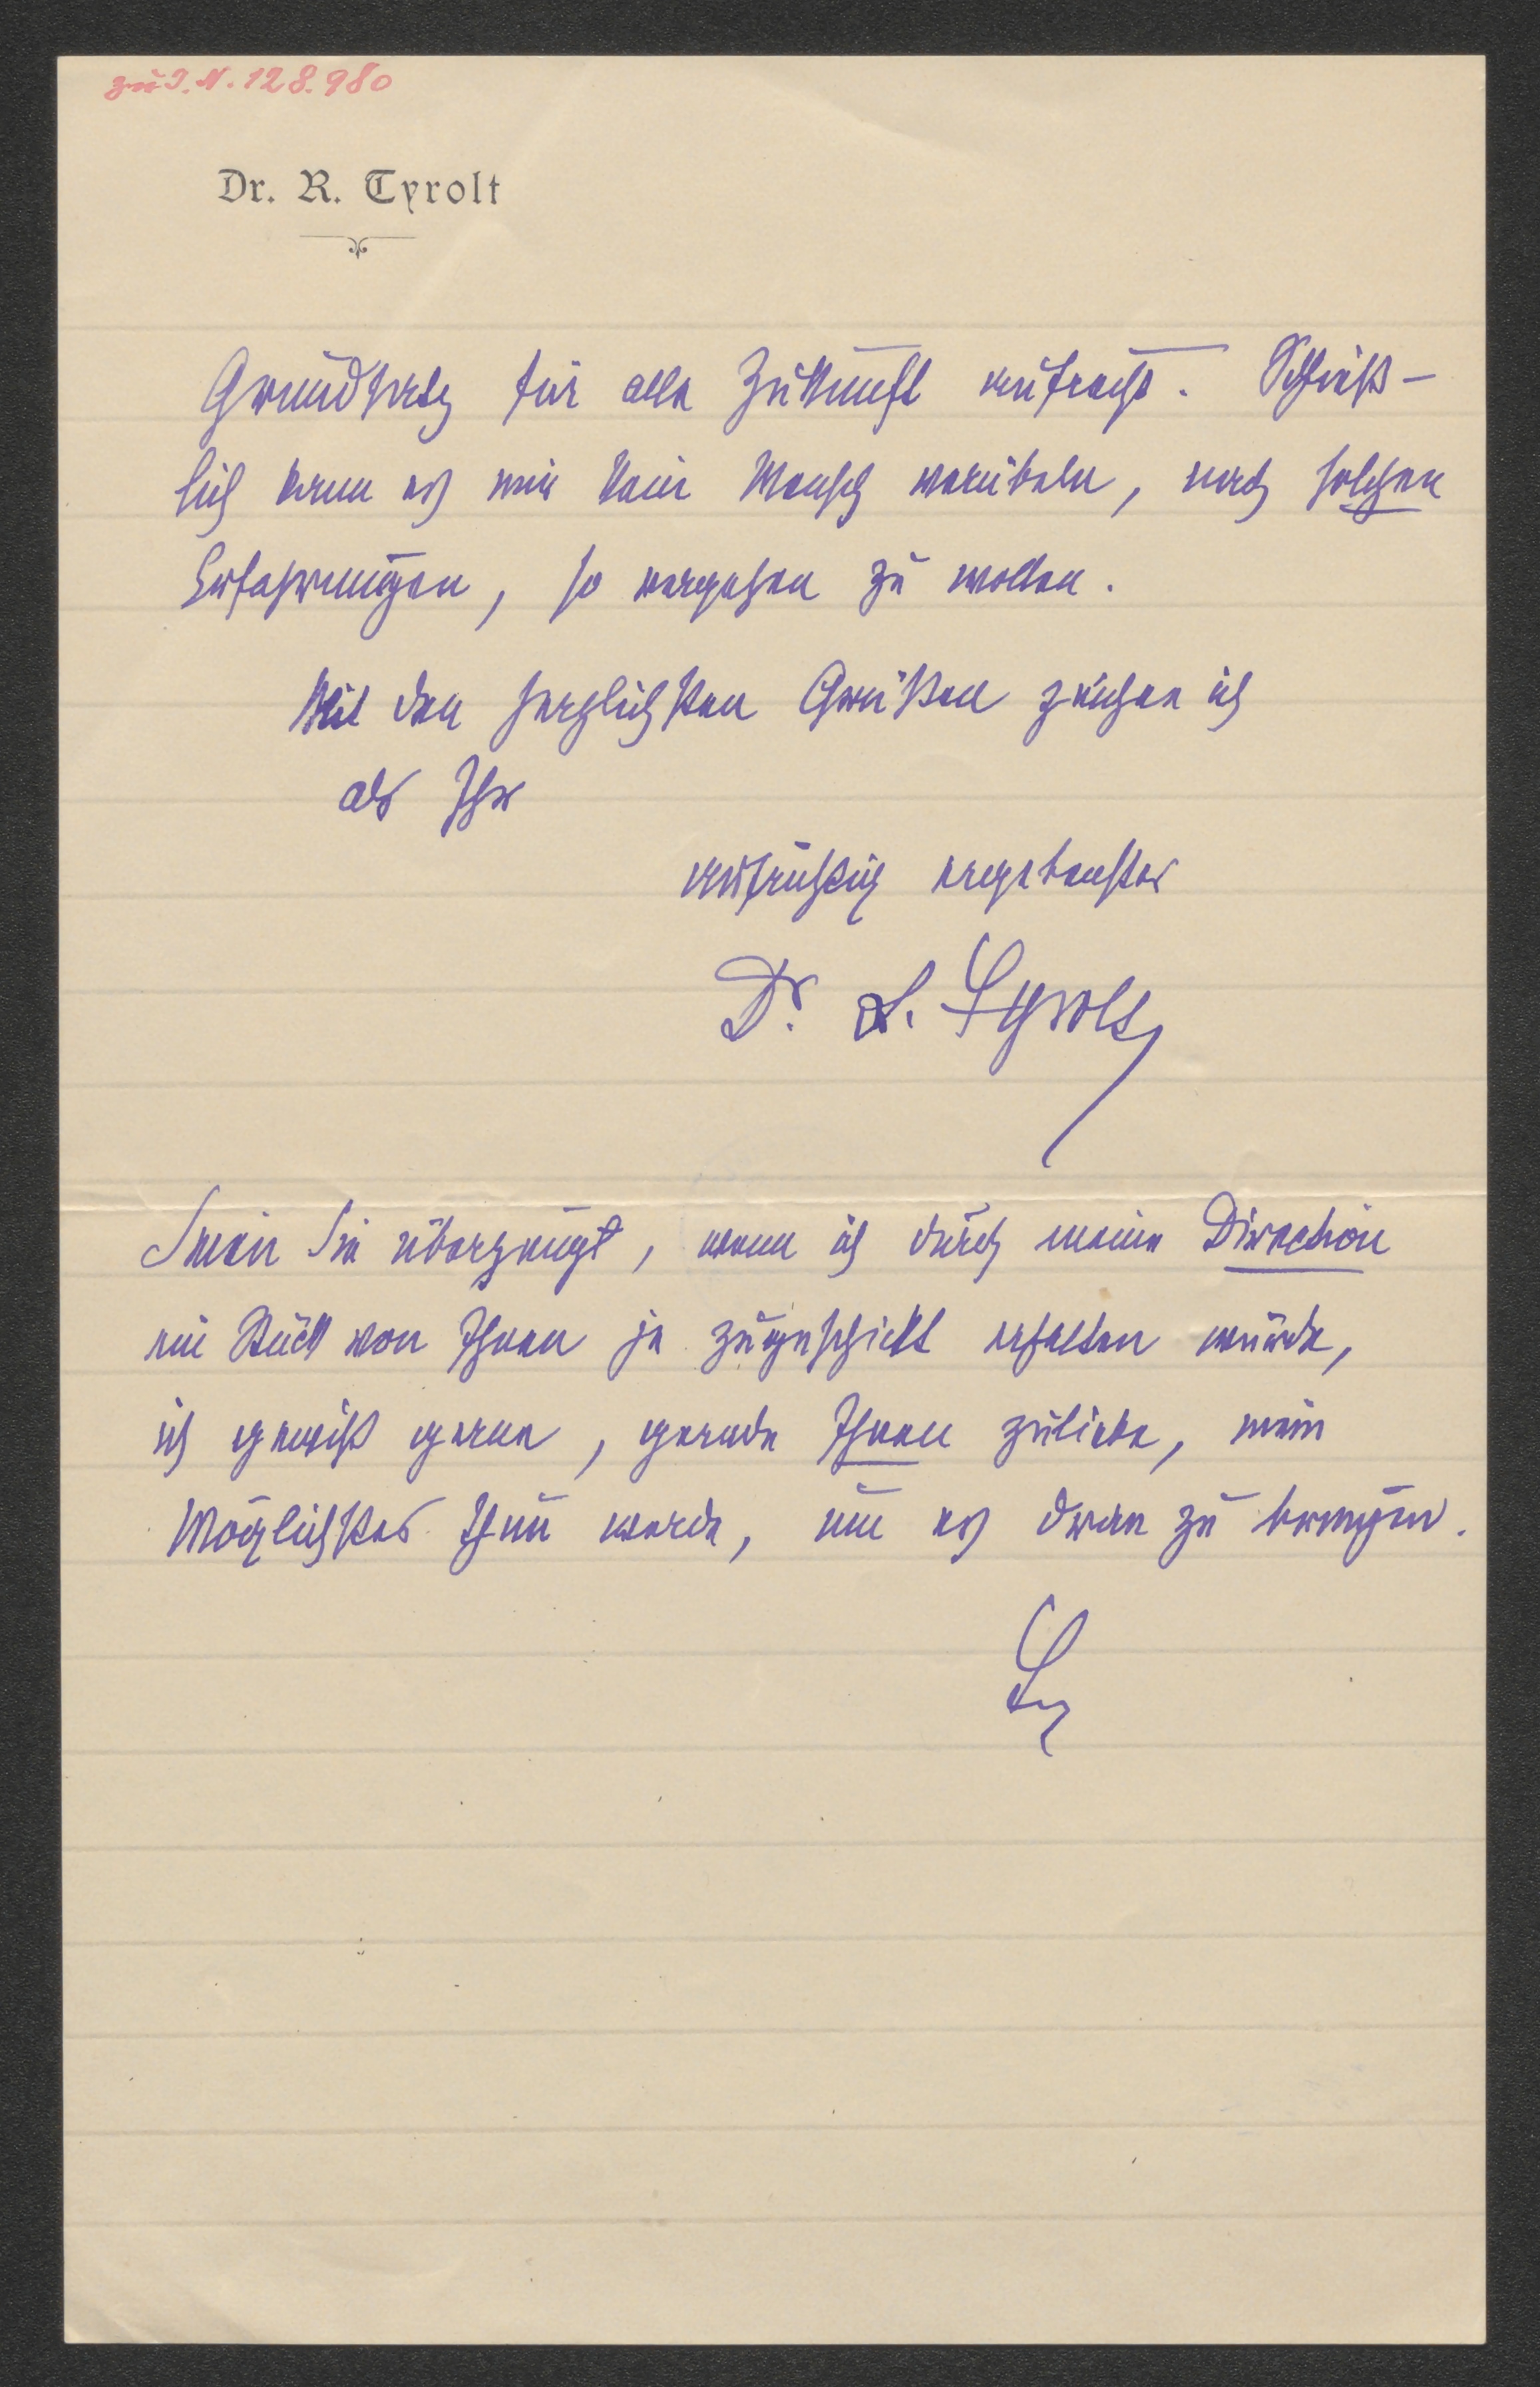 zu I. N. 128.980
Dr. R. Tyrolt
Grundsatz für alle Zukunft aufrecht. Schließ-
lich kann es mir kein Mensch verübeln, nach solchen
Erfahrungen, so vorgehen zu wollen.
Mit den herzlichsten Grüßen zeichne ich
als Ihr
aufrichtig ergebenster
Dr. R. Tyrolt
Seien Sie überzeugt, wenn ich durch meine Direction
ein Stück von Ihnen je zugeschickt erhalten würde,
ich gewiß gerne, gerade Ihnen zuliebe, mein
Möglichstes thun werde, um es dran zu bringen.
Ty